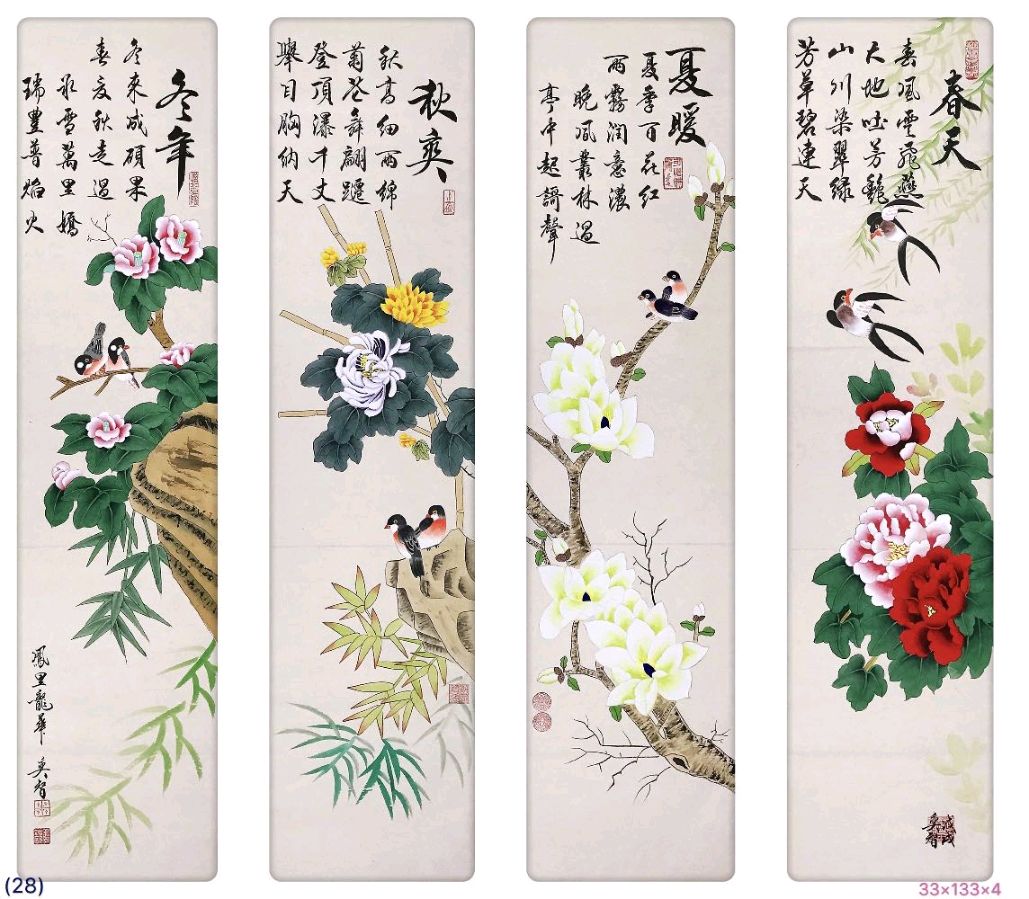 春天
春風雲飛燕
大地吐芳艷
山川染翠綠
芳草碧連天
戊戌
夏暖
夏季百花紅
雨霧潤意濃
晚風叢林過
亭中起謌聲
秋爽
秋高細雨綿
菊花舞翩躚
登頂瀑千丈
舉目胸納天
冬年
冬來成碩果
春夏秋走過
氷雪萬里嬌
瑞豐普焰火
鳳里龍華
(28)
33×133×4